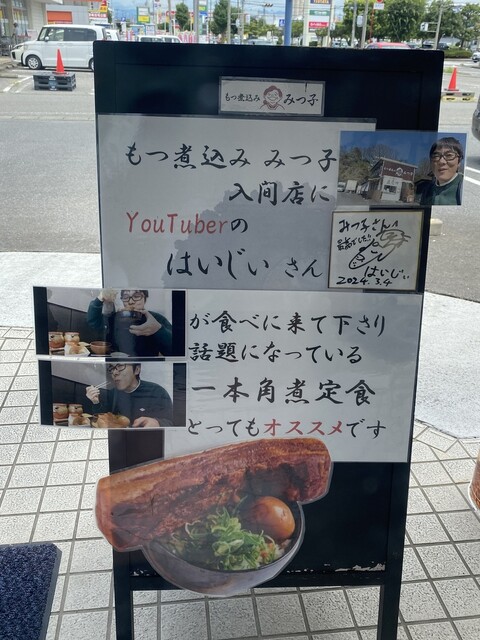 もつ煮込み みつ子
もつ煮込み みつ子
入间店に
YouTuberの
はいじぃ さん
みつ子さんへ
はいじぃ
2024.3.4
が食べに来て下さり
話題になっている
一本角煮定食
とってもオススメです